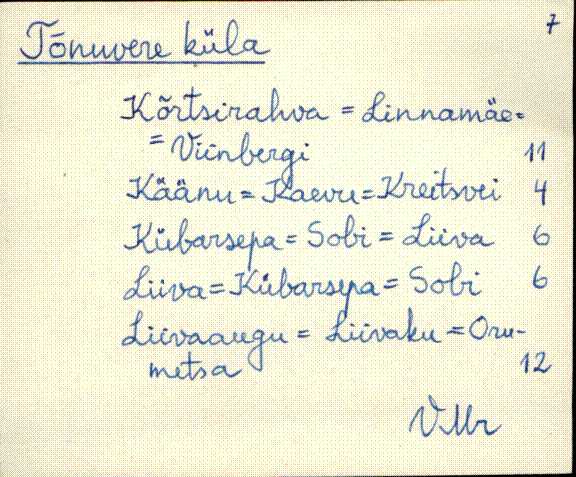 7
Tõnuvere küla
Kõrtsirahva = Linnamäe =
= Viinbergi 11
Käänu = Kaevu = Kreitsvei 4
Kübarsepa = Sobi = Liiva 6
Liiva = Kübarsepa = Sobi 6
Liivaaugu = Liivaku = Oru-
metsa 12
VMr